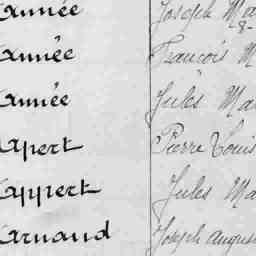 Année Joseph Ma
Année François M
Année Jules Ma
Apert Pierre Louis
Appert Jules Ma
Arnaud Joseph Augus